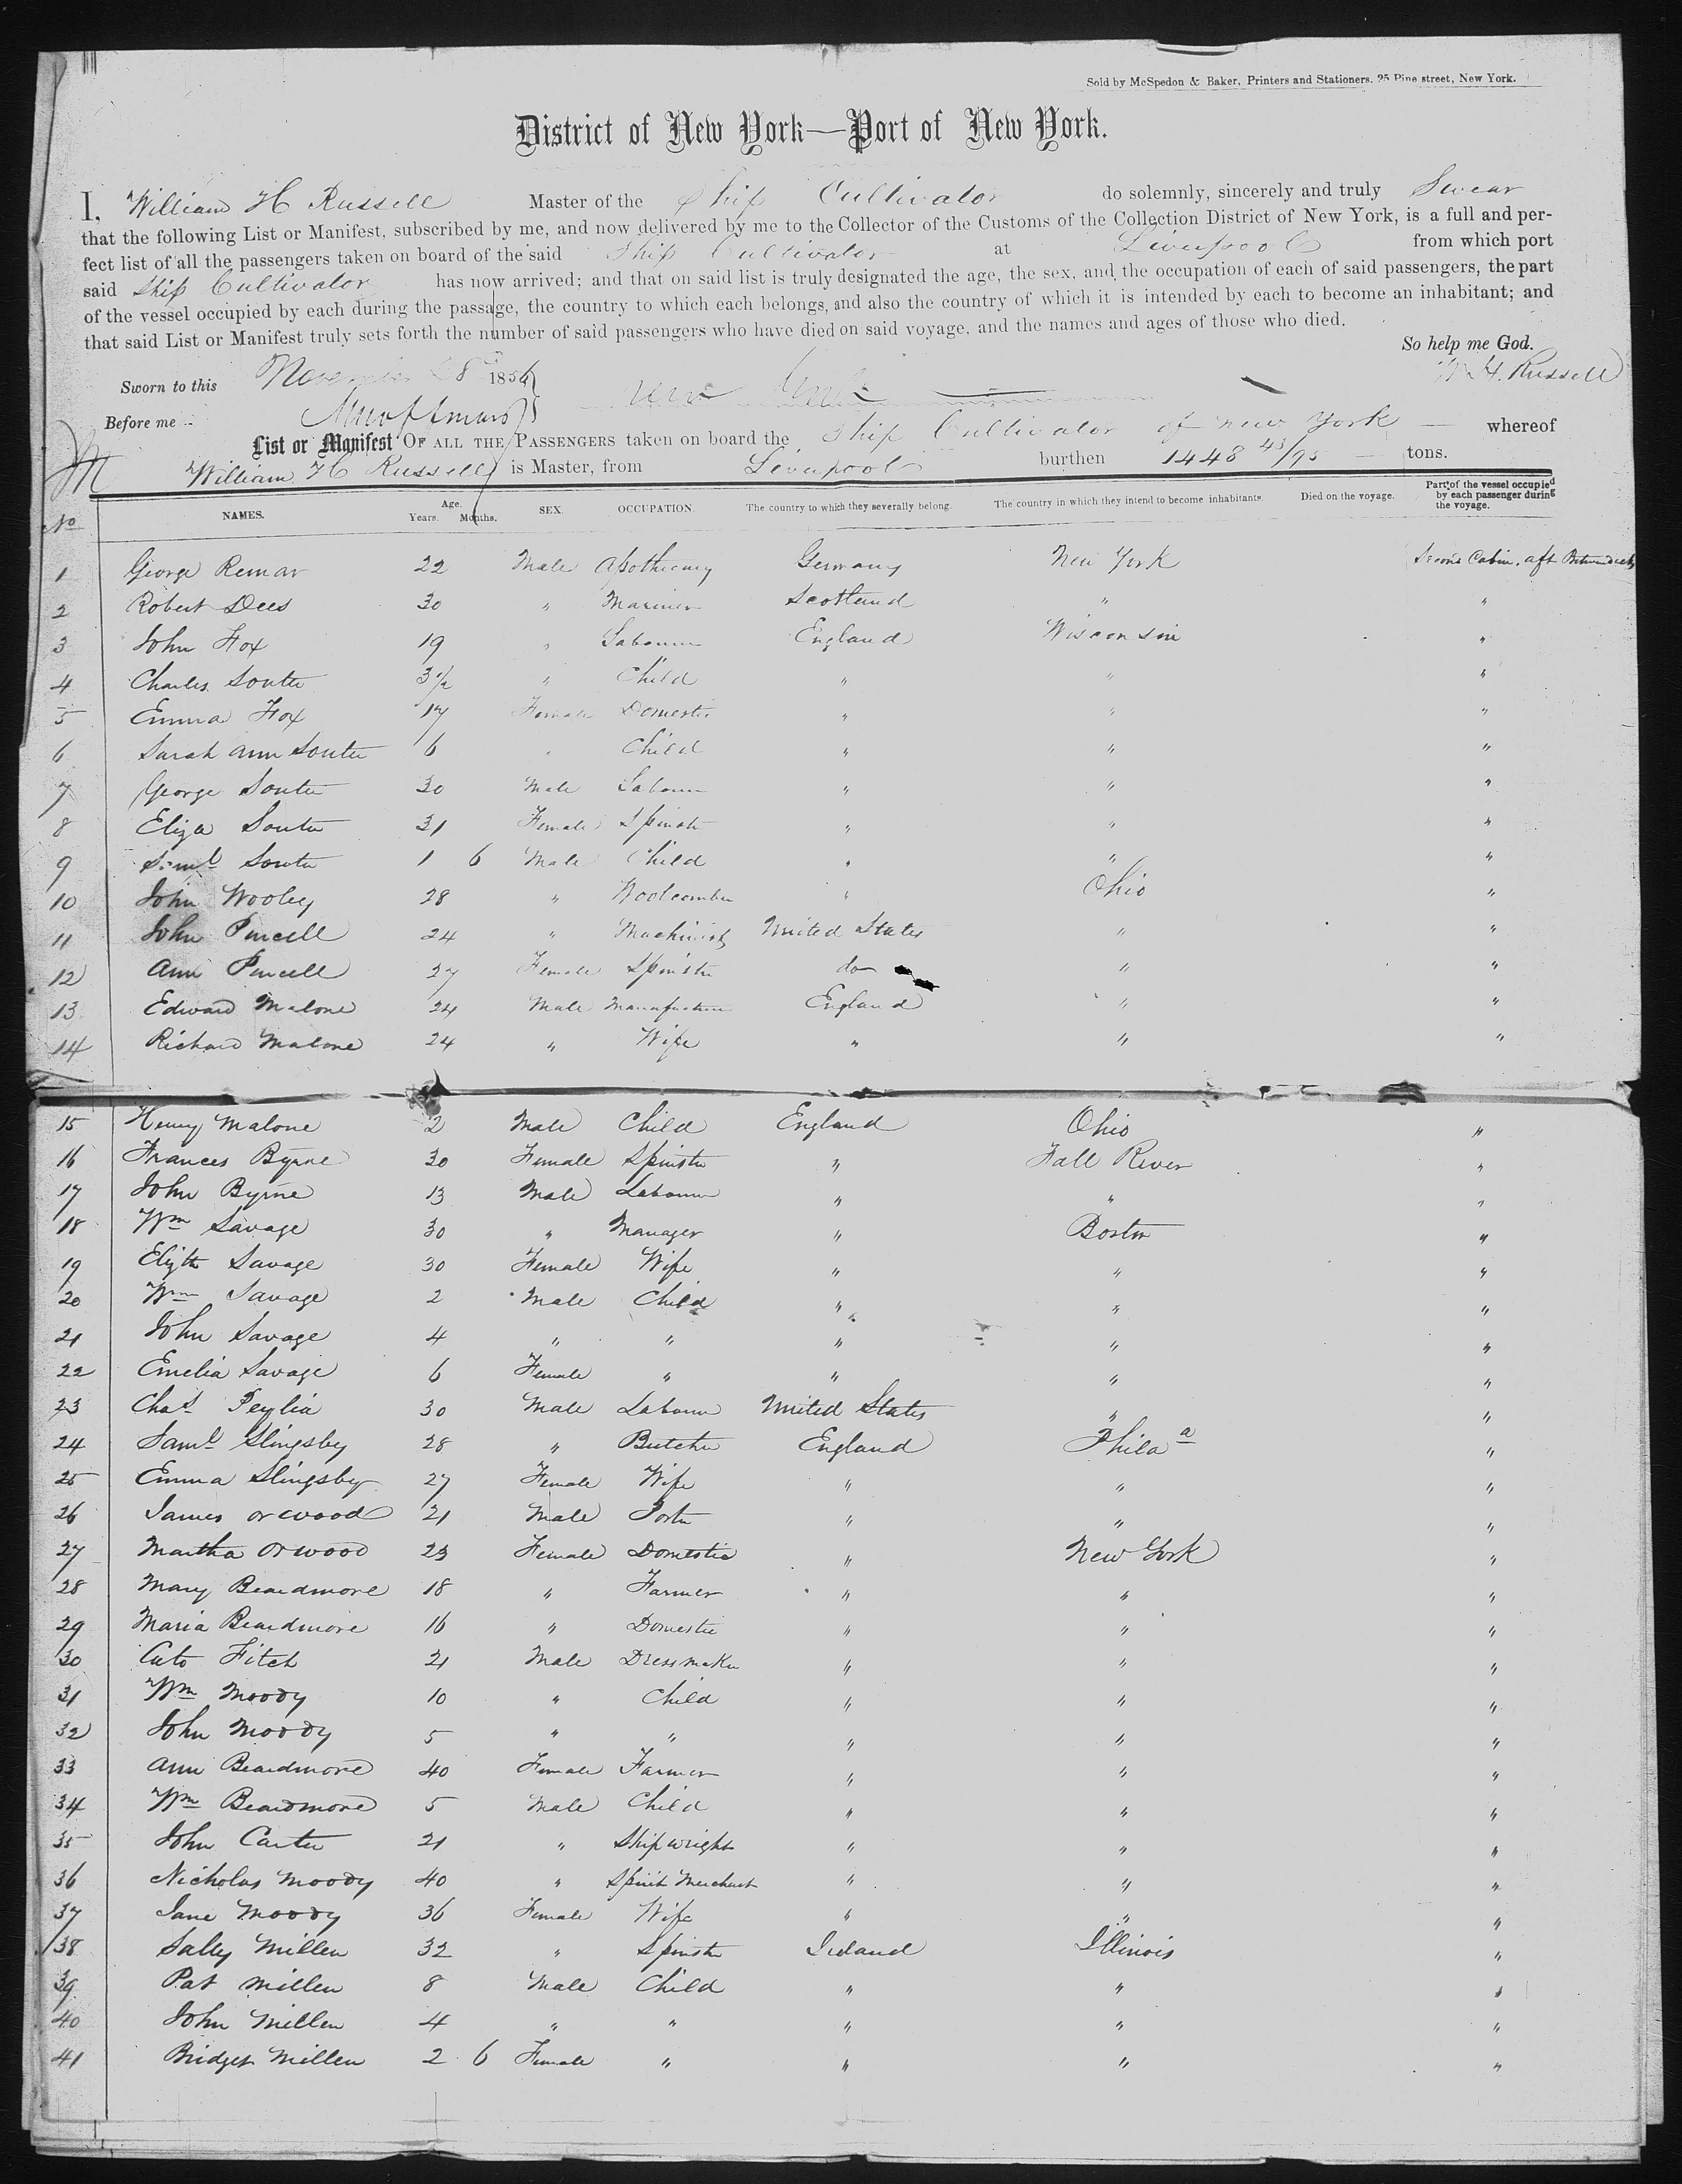 Sold by McSpedon & Baker, Printers and Stationers, 25 Pine street, New York.
District of New York—Port of New York.
I, William H Russell Master of the Ship Cultivator do solemnly, sincerely and truly Swear
that the following List or Manifest, subscribed by me, and now delivered by me to the Collector of the Customs of the Collection District of New York, is a full and per-
fect list of all the passengers taken on board of the said Ship Cultivator at Liverpool from which port
said Ship Cultivator has now arrived; and that on said list is truly designated the age, the sex, and the occupation of each of said passengers, the part
of the vessel occupied by each during the passage, the country to which each belongs, and also the country of which it is intended by each to become an inhabitant; and
that said List or Manifest truly sets forth the number of said passengers who have died on said voyage, and the names and ages of those who died.
So help me God.
Sworn to this November 28 185 W H. Russell
Before me
List or Manifest OF ALL THE PASSENGERS taken on board the Ship Cultivator of New York whereof
William H Russell is Master, from Liverpool burthen 1448 43/95 tons.
No NAMES. Age. Years. Months. SEX. OCCUPATION. The country to which they severally belong. The country in which they intend to become inhabitants. Died on the voyage. Part of the vessel occupied by each passenger during the voyage.
1 George Remar 22 Male Apothecary Germany New York Second Cabin, aft Betwendecks
2 Robert Dees 30 " Mariner Scotland " "
3 John Fox 19 " Labourer England Wisconsin "
4 Charles Souter 3 1/2 " Child " " "
5 Emma Fox 17 Female Domestic " " "
6 Sarah Ann Souter 6 " Child " " "
7 George Souter 30 Male Labourer " " "
8 Eliza Souter 31 Female Spinster " " "
9 Saml Souter 1 6 Male Child " " "
10 John Wooley 28 " Woolcomber " Ohio "
11 John Purcell 24 " Machinist United States " "
12 Ann Purcell 27 Female Spinster do " "
13 Edward Malone 24 Male Manufacturer England " "
14 Richard Malone 24 " Wife " " "
15 Henry Malone 2 Male Child England Ohio "
16 Frances Byrne 30 Female Spinster " Fall River "
17 John Byrne 13 Male Labourer " " "
18 Wm Savage 30 " Manager " Boston "
19 Elizth Savage 30 Female Wife " " "
20 Wm Savage 2 Male Child " " "
21 John Savage 4 " " " " "
22 Emelia Savage 6 Female " " " "
23 Chas Peylia 30 Male Labourer United States " "
24 Saml Slingsby 28 " Butcher England Phila a "
25 Emma Slingsby 27 Female Wife " " "
26 James Orwood 21 Male Porter " " "
27 Martha Orwood 23 Female Domestic " New York "
28 Mary Beardmore 18 " Farmer " " "
29 Maria Beardmore 16 " Domestic " " "
30 Cato Fitch 21 Male Dressmaker " " "
31 Wm Moody 10 " Child " " "
32 John Moody 5 " " " " "
33 Ann Beardmore 40 Female Farmer " " "
34 Wm Beardmore 5 Male Child " " "
35 John Carter 21 " Shipwright " " "
36 Nicholas Moody 40 " Spirit Merchant " " "
37 Jane Moody 36 Female Wife " " "
38 Sally Millen 32 " Spinster Ireland Illinois "
39 Pat Millen 8 Male Child " " "
40 John Millen 4 " " " " "
41 Bridget Millen 2 6 Female " " " "